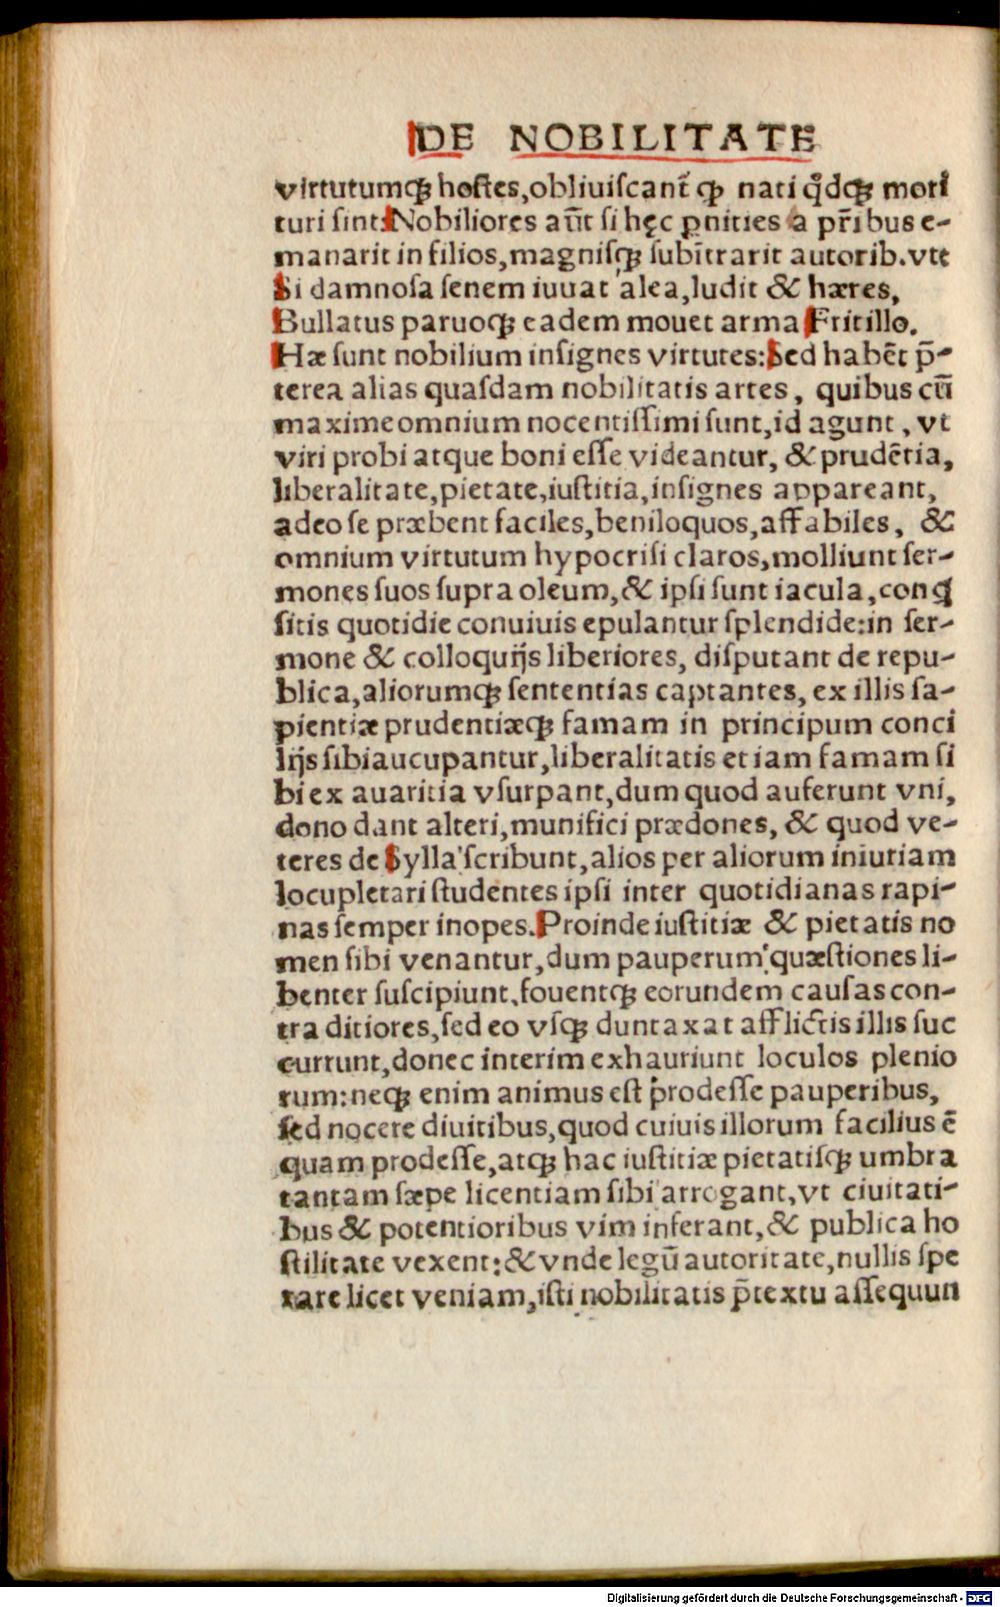 DE NOBILITATE
virtutumq́ꝫ hoſtes,obliuiſcant᷑ ꝙ nati qͣ̃dqꝫ mori
turi ſint:Nobiliores aūt ſi hęc ꝑnities a pr̃ibus e-
manarit in filios,magniſqꝫ ſubītrarit autorib.vte
Si damnoſa ſenem iuuat alea,ludit & hæres,
Bullatus paruoqꝫ eadem mouet arma Fritillo.
Hæ ſunt nobilium inſignes virtutes:Sed habēt p̄-
terea alias quaſdam nobilitatis artes, quibus cū
maxime omnium nocentiſſimi ſunt,id agunt, vt
viri probi atque boni eſſe videantur, & prudētia,
liberalitate,pietate,iuſtitia,inſignes appareant,
adeo ſe præbent faciles,beniloquos,affabiles, &
omnium virtutum hypocriſi claros,molliunt ſer-
mones ſuos ſupra oleum,& ipſi ſunt iacula,conꝗ
ſitis quotidie conuiuis epulantur ſplendide:in ſer-
mone & colloquijs liberiores, diſputant de repu-
blica,aliorumqꝫ ſententias captantes, ex illis ſa-
pientiæ prudentiæqꝫ famam in principum conci
lijs ſibi aucupantur,liberalitatis etiam famam ſi
bi ex auaritia vſurpant,dum quod auferunt vni,
dono dant alteri,munifici prædones, & quod ve-
teres de Sylla ſcribunt,alios per aliorum iniuriam
locupletari ſtudentes ipſi inter quotidianas rapi-
nas ſemper inopes.Proinde iuſtitiæ & pietatis no
men ſibi venantur,dum pauperum quæſtiones li-
benter ſuſcipiunt,fouentqꝫ eorundem cauſas con-
tra ditiores,ſed eo vſqꝫ duntaxat afflictis illis ſuc
currunt,donec interim exhauriunt loculos plenio
rum:neqꝫ enim animus eſt prodeſſe pauperibus,
ſed nocere diuitibus,quod cuiuis illorum facilius ē
quam prodeſſe,atqꝫ hac iuſtitiæ pietatiſqꝫ umbra
tantam ſæpe licentiam ſibi arrogant,vt ciuitati-
bus & potentioribus vim inferant,& publica ho
ſtilitate vexent:& vnde legū autoritate,nullis ſpe
rare licet veniam,iſti nobilitatis p̄textu aſſequun
Digitalisierung gefördert durch die Deutsche Forschungsgemeinschaft - DFG